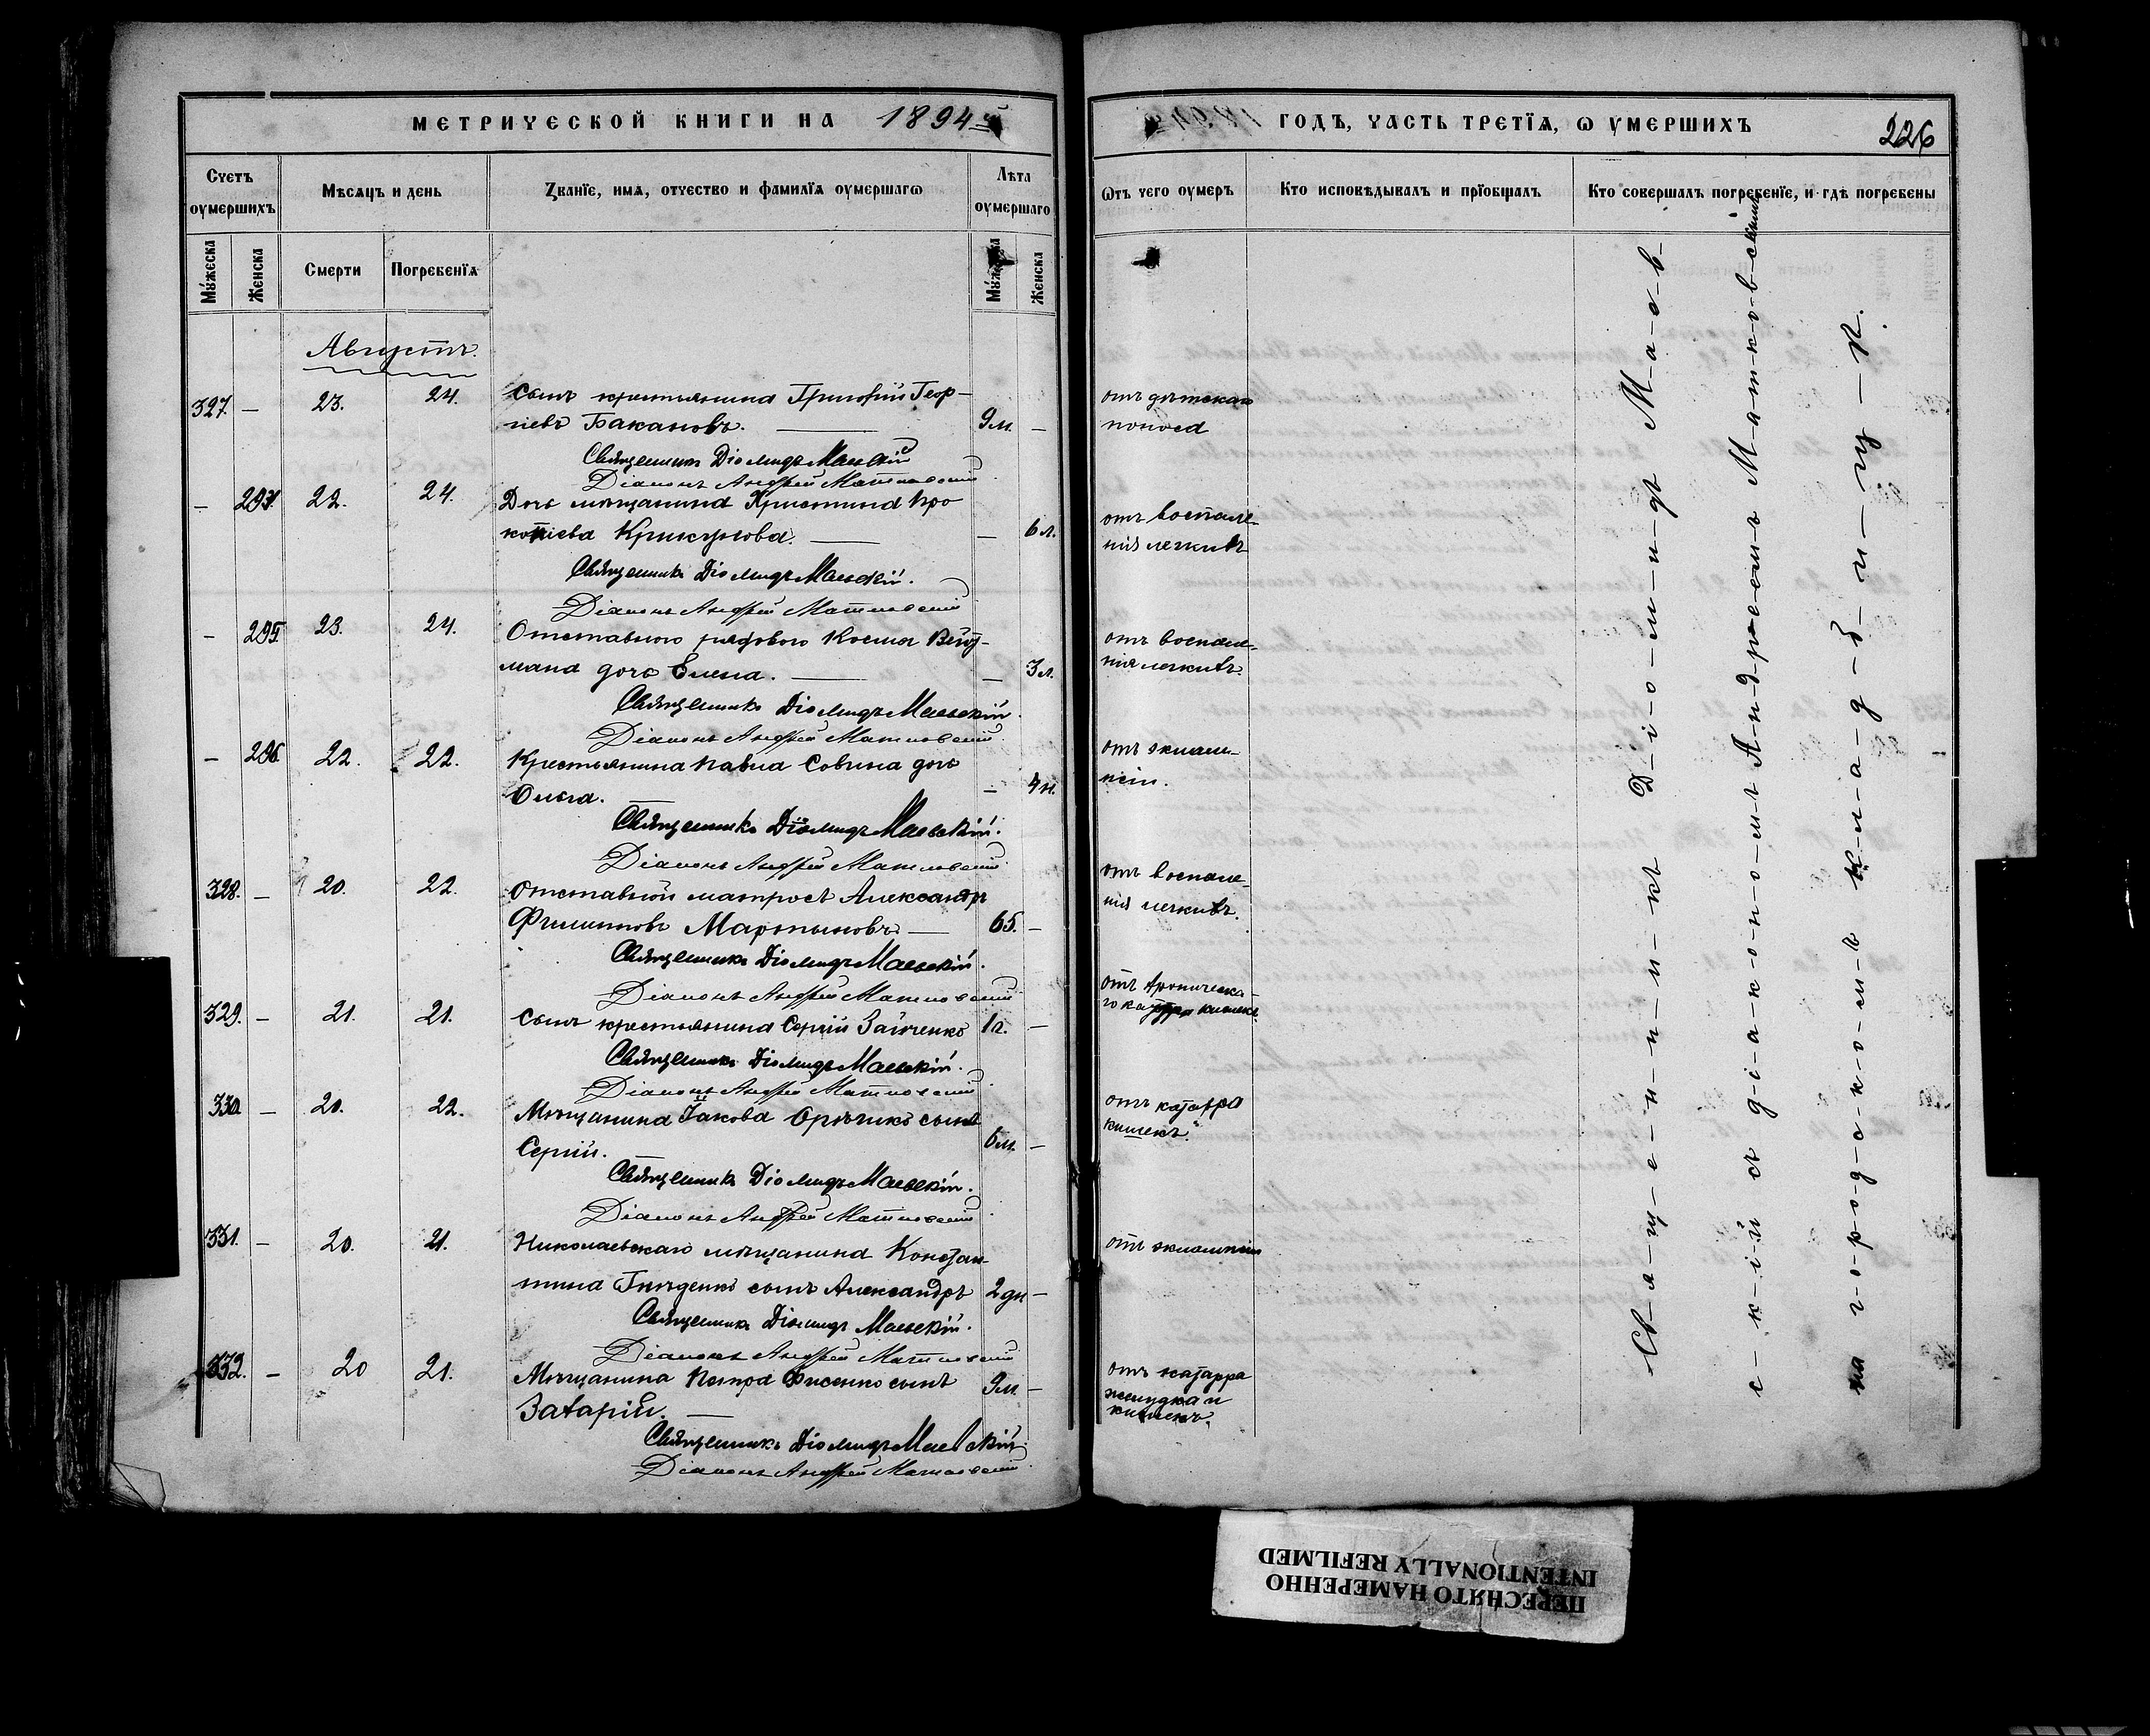 МЕТРИЧЕСКОЙ КНИГИ НА 1894й
ГОДЪ, ЧАСТЬ ТРЕТІЯ, Ѡ УМЕРШИХЪ
226
Счетъ оумершихъ
Мѣсяцъ и день
Званіе, имя, отчество и фамилія оумершагѡ
Лѣта оумершаго
Ѿтъ чего оумеръ
Кто исповѣдывалъ и пріобщалъ
Кто совершалъ погребеніе, и гдѣ погребены
Мужеска
Женска
Смерти
Погребенія
Мужеска
Женска
Августъ.
327. — 23. 24. Сынъ крестьянина Григорій Геор- отъ дѣтскаго
гіевъ Бакановъ. — 9 м. — поноса
Священникъ Діомидъ Маевскій
Діаконъ Андрей Матковскій
— 294. 22. 24. Дочь мѣщанина Христина Про отъ воспале-
копіева — 6 л. нія легкихъ
Священникъ Діомидъ Маевскій.
Діаконъ Андрей Матковскій
— 295 23. 24. Отставного рядового Космы отъ воспале-
мана дочь Елена. — 3 л. нія легкихъ.
Священникъ Діомидъ Маевскій.
Діаконъ Андрей Матковскій
— 296 22. 22. Крестьянина Павла Совина дочь отъ эклам-
Ольга. — 4 н. псіи.
Священникъ Діомидъ Маевскій.
Діаконъ Андрей Матковскій
328. — 20. 22. Отставной матросъ Александръ отъ воспале-
Филиповъ Мартыновъ — 65. — нія легкихъ.
Священникъ Діомидъ Маевскій.
Діаконъ Андрей Матковскій
329. — 21. 21. Сынъ крестьянина Сергій Зайченко 1 г. — отъ хроническа-
го катарра кишекъ.
Священникъ Діомидъ Маевскій.
Діаконъ Андрей Матковскій
330 — 20. 22. Мѣщанина Іакова Орѣчико сынъ отъ катарра
Сергій. 6 м. — кишекъ.
Священникъ Діомидъ Маевскій.
Діаконъ Андрей Матковскій
331. — 20. 21. Николаевскаго мѣщанина Констан- отъ экламсіи
тина Гнѣденко сынъ Александръ 2 дн —
Священникъ Діомидъ Маевскій.
Діаконъ Андрей Матковскій
332. — 20 21. Мѣщанина Петра Фисенко сынъ 9 м. — отъ катарра
Захарій. — желудка и
кишекъ.
Священникъ Діомидъ Маевскій
Діаконъ Андрей Матковскій
Св-я-щ-е-н-н-и-къ Д-і-о-м-и-дъ М-а-е-в-
с-к-і-й съ д-і-а-к-о-н-о-мъ А-н-д-р-е-емъ М-а-т-к-о-в-скимъ
на г-о-р-о-д-с-к-о-м-ъ К-л-а-д-б-и-щ-ѣ.
ПЕРЕСНЯТО НАМЕРЕННО
INTENTIONALLY REFILMED